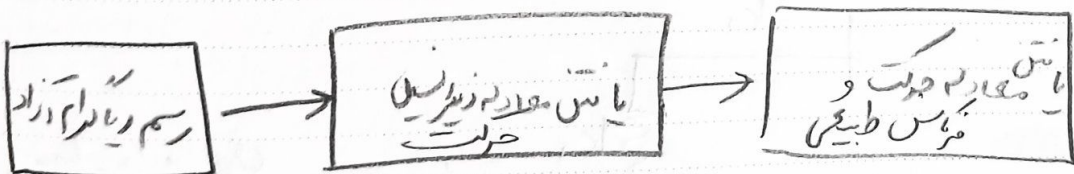 رسم دیاگرام آزاد
یافتن معادله دیفرانسیل
حرکت
یافتن معادله حرکت و
فرکانس طبیعی